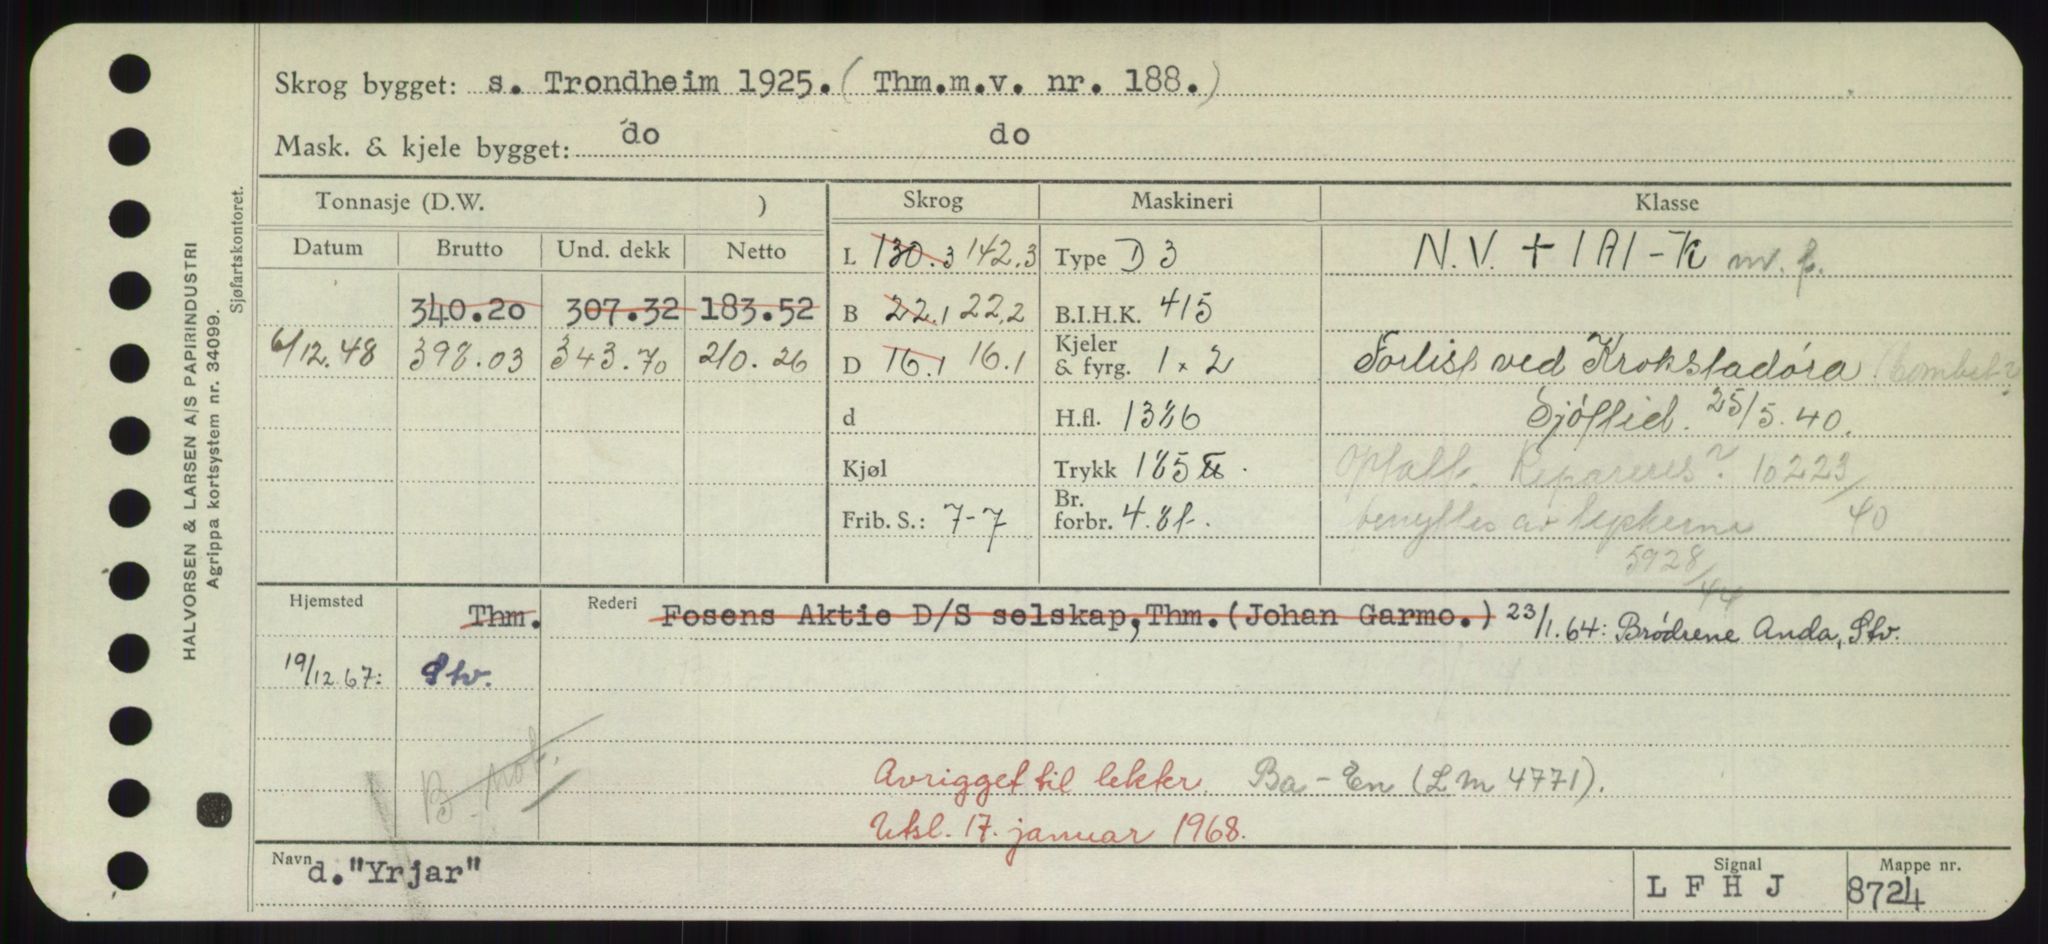 Skrog bygget: s. Trondheim 1925. (Thm.m.v. nr. 188.)
Mask. & kjele bygget: do do
Tonnasje (D.W. ) Skrog Maskineri Klasse
Datum Brutto Und. dekk Netto L 130.3 142.3 Type D 3 N.V. + 1A1 - K m. f.
340.20 307.32 183.52 B 22.1 22.2 B.I.H.K. 415
6/12.48 398.03 343.70 210.26 D 16.1 16.1 Kjeler & fyrg. 1 x 2 Forlist ved Krokstadóra (bombet?
d H.fl. 1386 Sjöflid. 25/5.40.
Kjøl Trykk 185 lb. Optatt. Repareres? 10223/40
Frib. S.: 7-7 Br. forbr. 4.8 t. benyttes av tyskerne
5928/44
Hjemsted Thm. Rederi Fosens Aktie D/S selskap, Thm. (Johan Garmo.) 23/1.64: Brødrene Anda, Stv.
19/12 67: Stv.
B. Mot.
Avrigget til lekter. Ba-En (LM 4771).
Utsl. 17. januar 1968.
Navn d. "Yrjar" Signal L F H J Mappe nr. 8724
HALVORSEN & LARSEN A/S PAPIRINDUSTRI
Agrippa kortsystem nr. 34099.
Sjøfartskontoret.